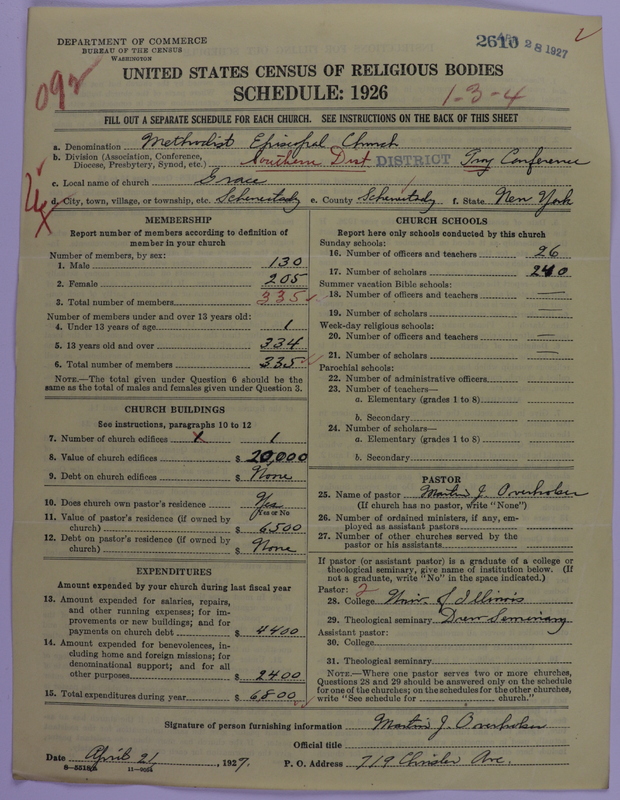 DEPARTMENT OF COMMERCE
BUREAU OF THE CENSUS
WASHINGTON
2610 APR 28 1927
092
UNITED STATES CENSUS OF RELIGIOUS BODIES
SCHEDULE: 1926
1-3-4
FILL OUT A SEPARATE SCHEDULE FOR EACH CHURCH. SEE INSTRUCTIONS ON THE BACK OF THIS SHEET
a. Denomination Methodist Episcopal Church
b. Division (Association, Conference, Diocese, Presbytery, Synod, etc.) Southern Dist DISTRICT Troy Conference
c. Local name of church Grace
d. City, town, village, or township, etc. Schenectady e. County Schenectady f. State New York
MEMBERSHIP
Report number of members according to definition of
member in your church
Number of members, by sex:
1. Male 130
2. Female 205
3. Total number of members 335
Number of members under and over 13 years old:
4. Under 13 years of age 1
5. 13 years old and over 334
6. Total number of members 335
NOTE.—The total given under Question 6 should be
same as the total of males and females given under Question 3.
CHURCH BUILDINGS
See instructions, paragraphs 10 to 12
7. Number of church edifices 1
8. Value of church edifices $ 20,000
9. Debt on church edifices $ None
10. Does church own pastor's residence Yes
Yes or No
11. Value of pastor's residence (if owned by
church) $ 6,500
12. Debt on pastor's residence (if owned by
church) $ None
EXPENDITURES
Amount expended by your church during last fiscal year
13. Amount expended for salaries, repairs,
and other running expenses; for im-
provements or new buildings; and for
payments on church debt $ 4400
14. Amount expended for benevolences, in-
cluding home and foreign missions; for
denominational support; and for all
other purposes $ 2400
15. Total expenditures during year $ 6800
CHURCH SCHOOLS
Report here only schools conducted by this church
Sunday schools:
16. Number of officers and teachers 26
17. Number of scholars 240
Summer vacation Bible schools:
18. Number of officers and teachers —
19. Number of scholars —
Week-day religious schools:
20. Number of officers and teachers —
21. Number of scholars —
Parochial schools:
22. Number of administrative officers
23. Number of teachers—
a. Elementary (grades 1 to 8)
b. Secondary
24. Number of scholars—
a. Elementary (grades 1 to 8)
b. Secondary
PASTOR
25. Name of pastor Martin J. Overholser
(If church has no pastor, write "None")
26. Number of ordained ministers, if any, em-
ployed as assistant pastors
27. Number of other churches served by the
pastor or his assistants
If pastor (or assistant pastor) is a graduate of a college or
theological seminary, give name of institution below. (If
not a graduate, write "No" in the space indicated.)
Pastor: 2
28. College Univ. of Illinois
29. Theological seminary Drew Seminary
Assistant pastor:
30. College
31. Theological seminary
NOTE.—Where one pastor serves two or more churches,
Questions 28 and 29 should be answered only on the schedule
for one of the churches; on the schedules for the other churches,
write "See schedule for church."
Signature of person furnishing information Martin J. Overholser
Official title
Date April 21, 1927. P. O. Address 719 Chrisler Ave.